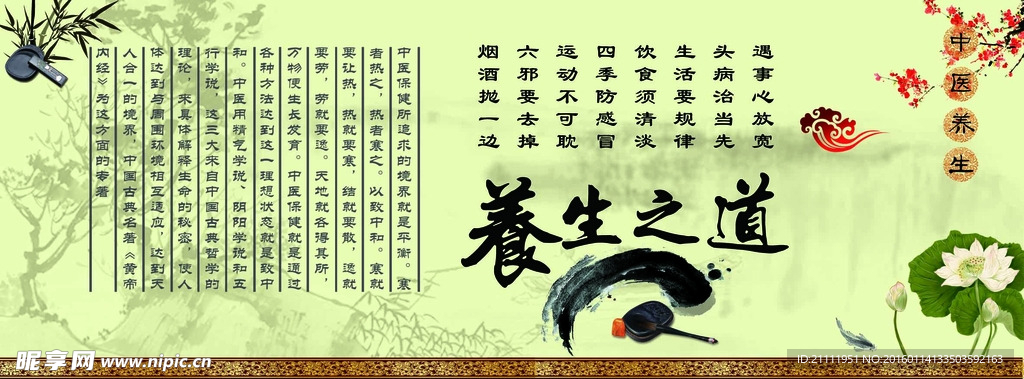 中医养生
遇事心放宽
头病治当先
生活要规律
饮食须清淡
四季防感冒
运动不可耽
六邪要去掉
烟酒抛一边
養生之道
中医保健所追求的境界就是平衡。寒
者热之,热者寒之。以致中和。寒就
要让热,热就要寒,结就要散,逸就
要劳,劳就要逸。天地就各得其所,
万物便生长发育。中医保健就是通过
各种方法达到这一理想状态就是致中
和。中医用精气学说、阴阳学说和五
行学说,这三大来自中国古典哲学的
理论,来具体解释生命的秘密,使人
体达到与周围环境相互适应,达到天
人合一的境界,中国古典名著《黄帝
内经》为这方面的专著
昵享网 www.nipic.cn
ID:21111951 NO:20160114133503592163